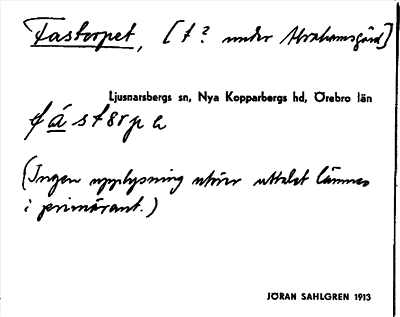 Fastorpet, [t? under Abrahamsgård]
Ljusnarsbergs sn, Nya Kopparbergs hd, Örebro län
fástorpe
(Ingen upplysning utöver uttalet lämnas
i primäront.)
JÖRAN SAHLGREN 1913